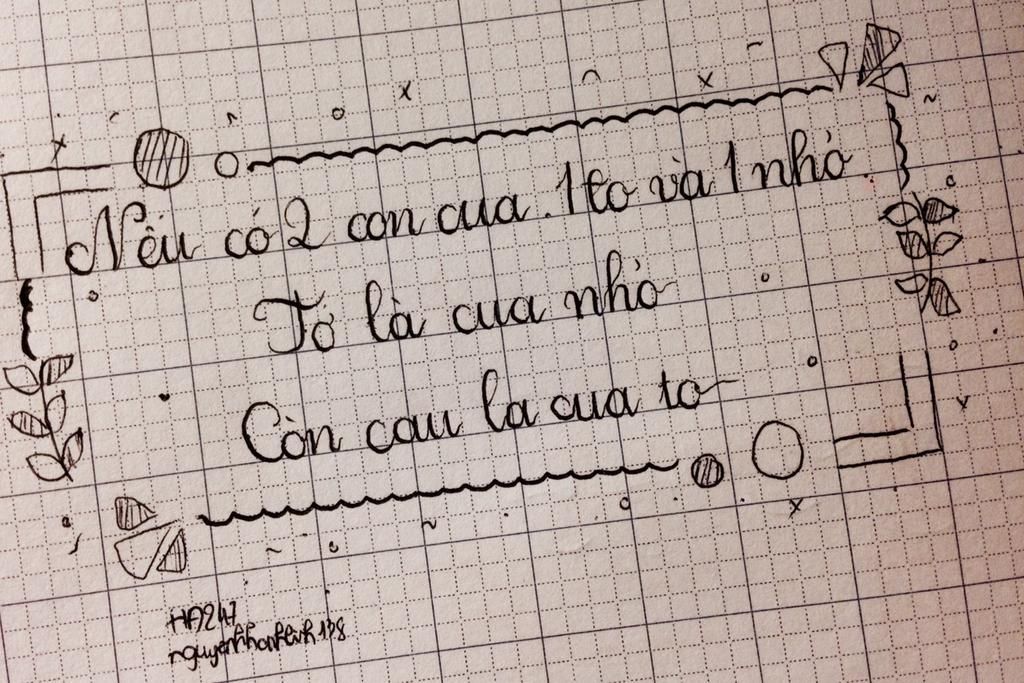 Nếu có 2 con cua. 1 to và 1 nhỏ.
Tớ là cua nhỏ
Còn cậu la cua to
HA247